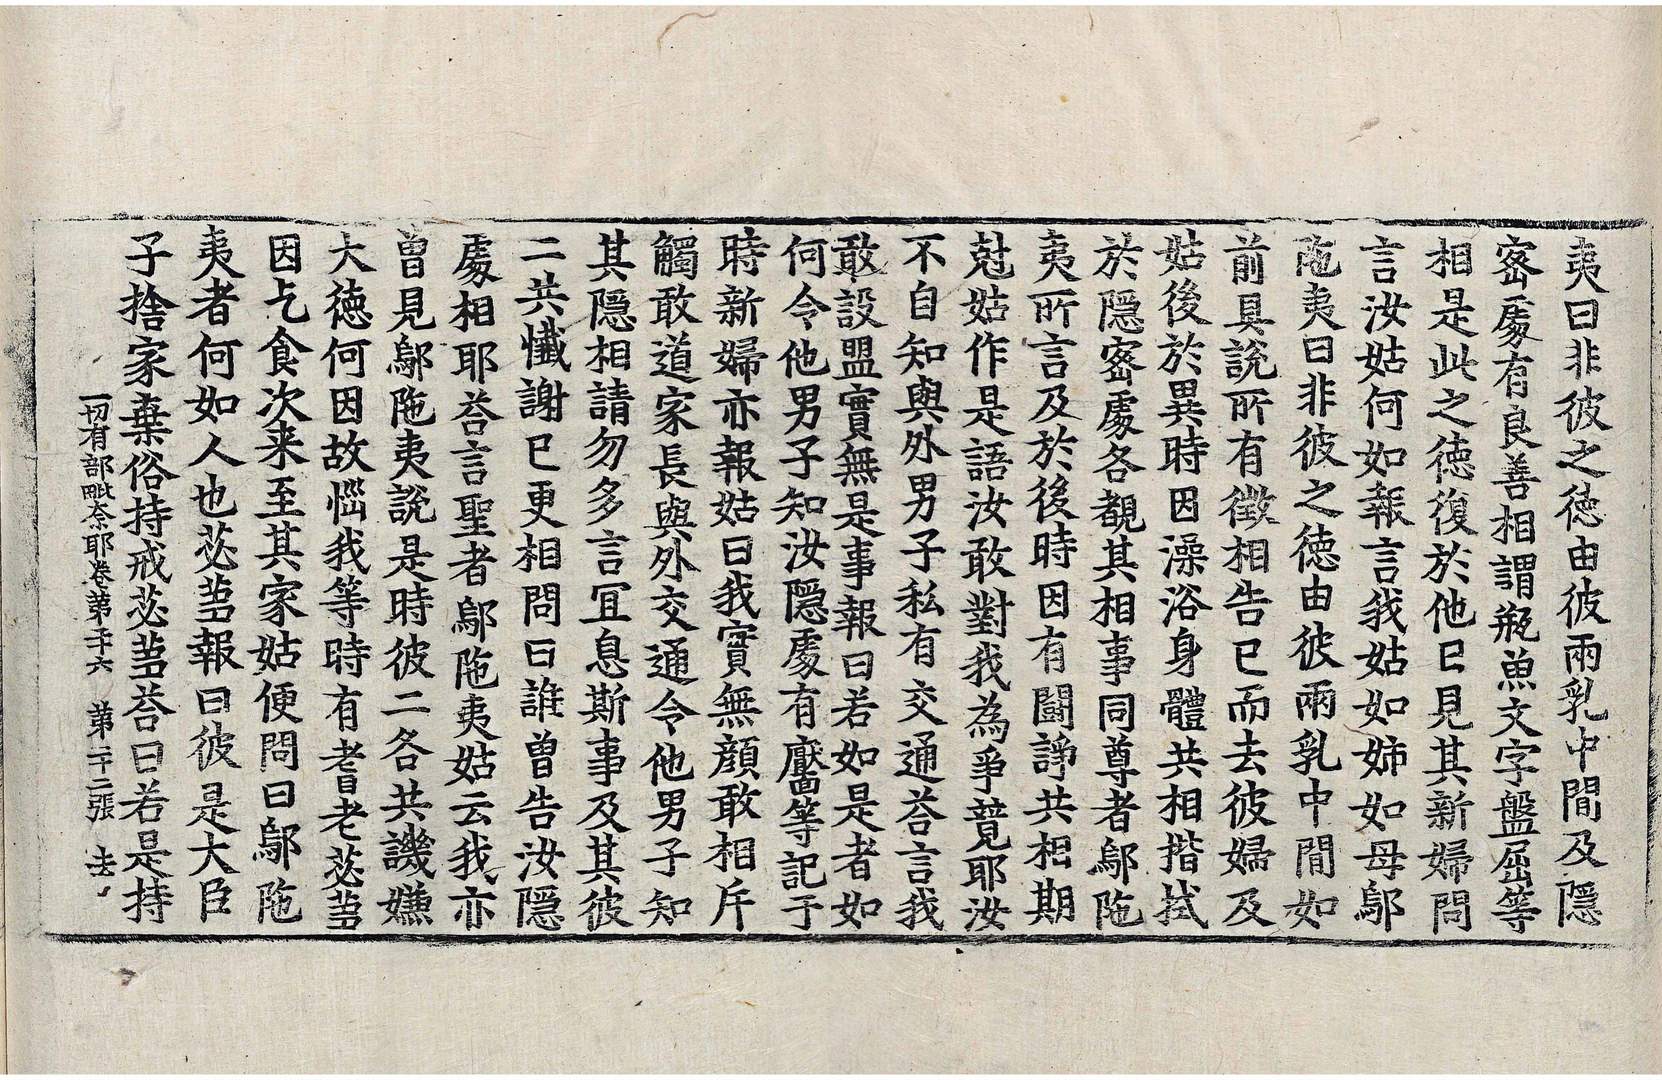 夷曰非彼之徳由彼兩乳中間及隱
宻𠁅有良善相謂瓶魚文字盤屈等
相是此之徳復於他日見其新婦問
言汝姑何如報言我姑如姉如母鄔
陁夷曰非彼之徳由彼兩乳中間如
前具說所有徵相告已而去彼婦及
姑後於異時因澡浴身體共相揩拭
於隱宻𠁅各覩其相事同尊者鄔陁
夷所言及於後時因有鬪諍共相期
尅姑作是語汝敢對我為爭競耶汝
不自知與外男子私有交通荅言我
敢設盟實無是事報曰若如是者如
何令他男子知汝隱𠁅有黶等記于
時新婦亦報姑曰我實無顔敢相斥
觸敢道家長與外交通令他男子知
其隱相請勿多言冝息斯事及其彼
二共懺謝已更相問曰誰曽告汝隱
𠁅相耶荅言聖者鄔陁夷姑云我亦
曽見鄔陁夷說是時彼二各共譏嫌
大徳何因故惱我等時有耆老苾蒭
因乞食次来至其家姑便問曰鄔陁
夷者何如人也苾蒭報曰彼是大臣
子捨家棄俗持戒苾蒭荅曰若是持
一切有部毗奈耶卷第二十六　第二十二張　去